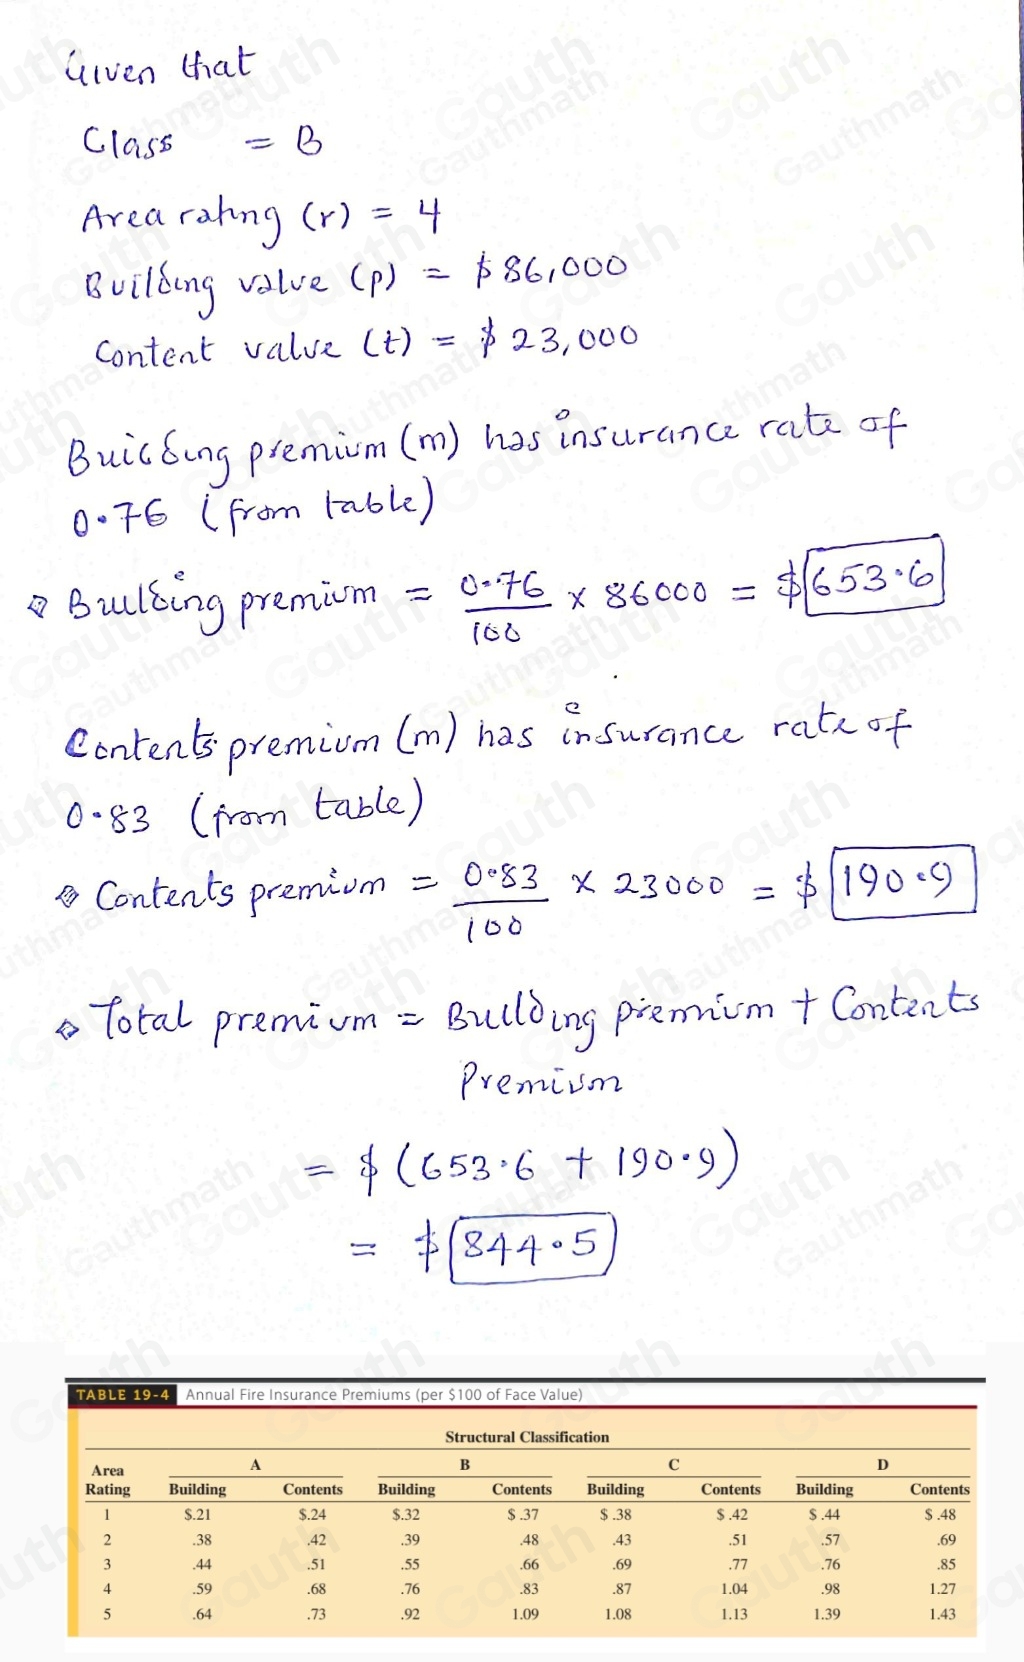 Given that
Class = B
Area rating (r) = 4
Building value (p) = $86,000
Content value (t) = $23,000
Building premium (m) has insurance rate of
0.76 (from table)
Building premium = 0.76/100 × 86000 = $653.6
Contents premium (m) has insurance rate of
0.83 (from table)
Contents premium = 0.83/100 × 23000 = $190.9
Total premium = Building premium + Contents
Premium
= $(653.6 + 190.9)
= $844.5
TABLE 19-4 Annual Fire Insurance Premiums (per $100 of Face Value)
Structural Classification
A B C D
Area
Rating Building Contents Building Contents Building Contents Building Contents
1 $.21 $.24 $.32 $.37 $.38 $.42 $.44 $.48
2 .38 .42 .39 .48 .43 .51 .57 .69
3 .44 .51 .55 .66 .69 .77 .76 .85
4 .59 .68 .76 .83 .87 1.04 .98 1.27
5 .64 .73 .92 1.09 1.08 1.13 1.39 1.43